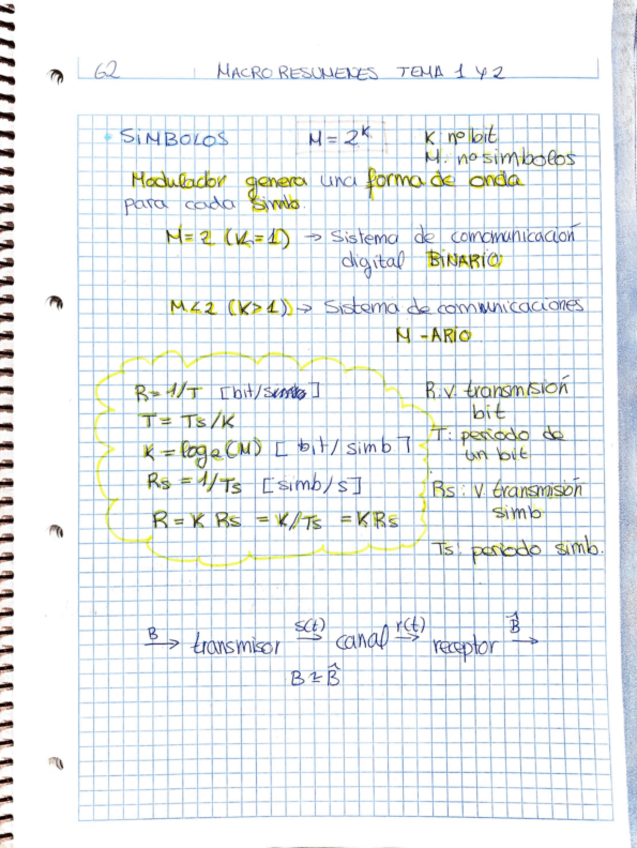 62 MACRO RESUMENES TEMA 1 Y 2
SIMBOLOS M = 2^K K: nº bit
M: nº simbolos
Modulador genera una forma de onda
para cada Simb.
M=2 (K=1) → Sistema de comomunicación
digital BINARIO
M<2 (K>1) → Sistema de comunicaciones
M-ARIO
R=1/T [bit/simb] R: v. transmisión
bit
T = Ts/K
T: periodo de
un bit
K = log2(M) [bit/simb]
Rs = 1/Ts [simb/s] Rs: v. transmisión
simb
R = K Rs = K/Ts = K Rs
Ts: periodo simb.
B → transmisor s(t) → canal r(t) → receptor B̂ →
B ≃ B̂